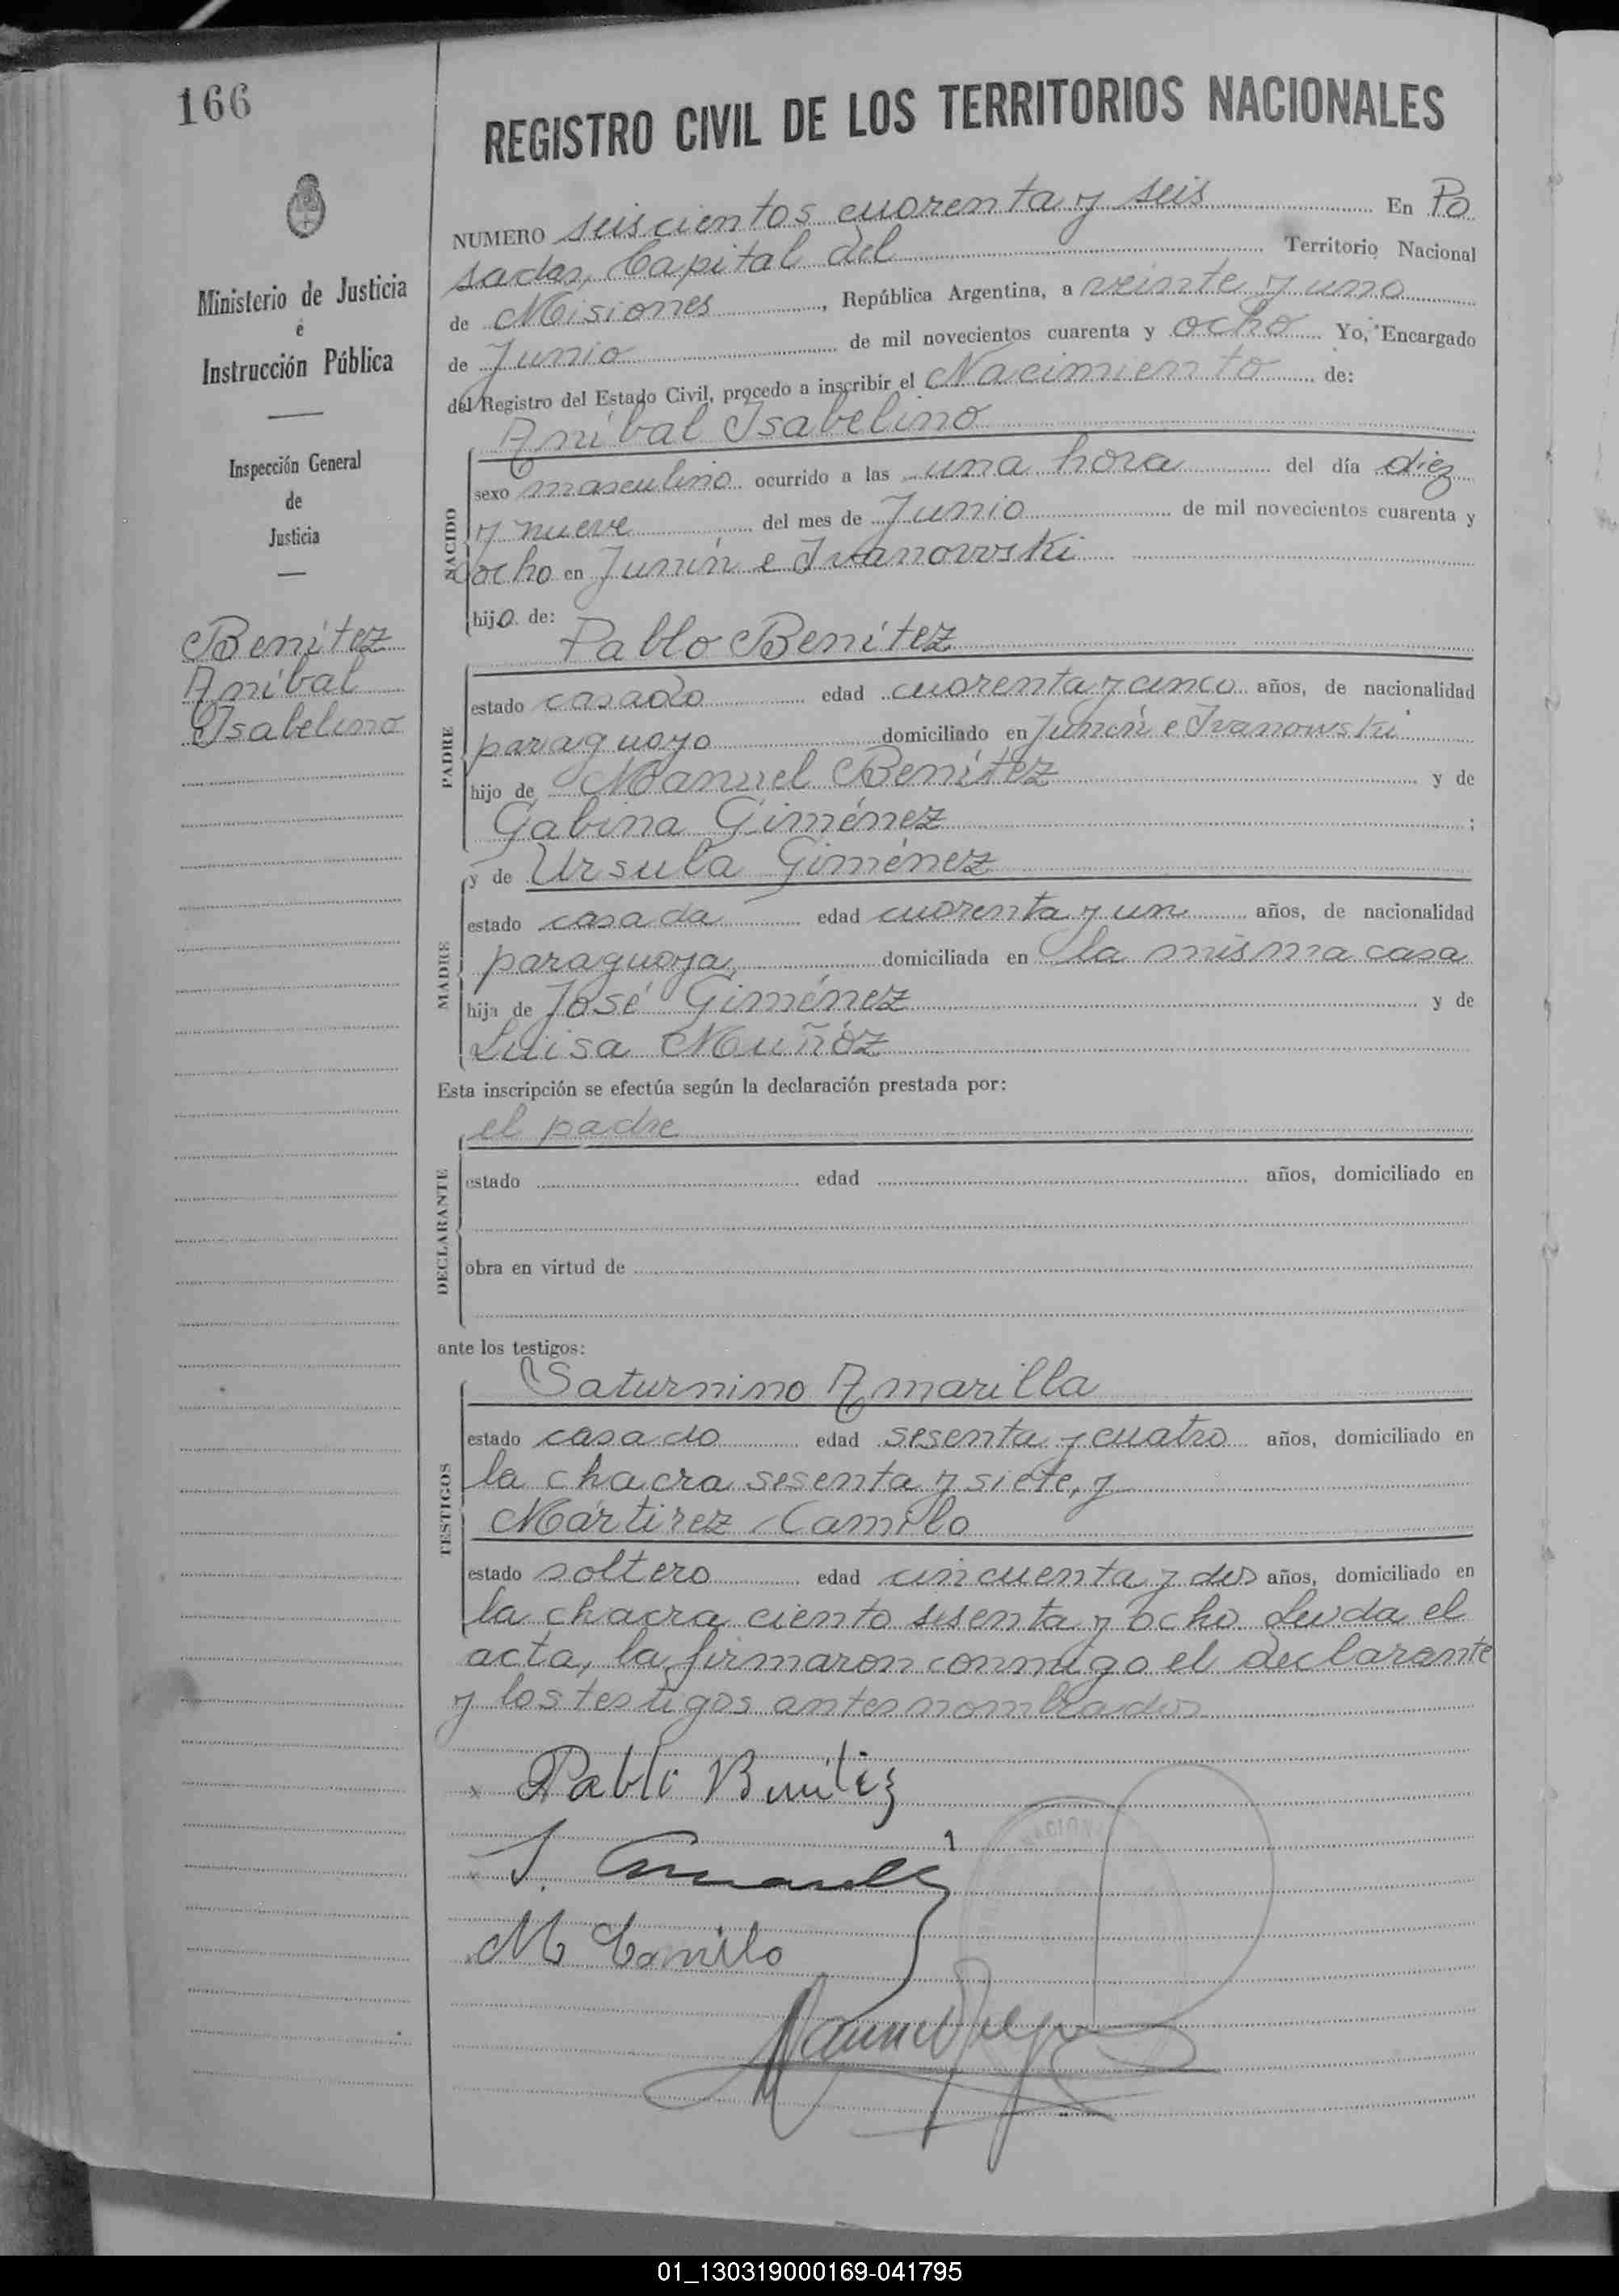 166
REGISTRO CIVIL DE LOS TERRITORIOS NACIONALES
Ministerio de Justicia
e
Instrucción Pública
Inspección General
de
Justicia
Benítez
Aníbal
Isabelino
NUMERO seiscientos cuarenta y seis En Po
sadas, Capital del Territorio Nacional
de Misiones, República Argentina, a veinte y uno
de Junio de mil novecientos cuarenta y ocho Yo, Encargado
del Registro del Estado Civil, procedo a inscribir el Nacimiento de:
Aníbal Isabelino
NACIDO
sexo masculino ocurrido a las una hora del día diez
y nueve del mes de Junio de mil novecientos cuarenta y
ocho en Junín e Ivanowski
hijo de:
Pablo Benítez
PADRE
estado casado edad cuarenta y cinco años, de nacionalidad
paraguayo domiciliado en Junín e Ivanowski
hijo de Manuel Benítez y de
Gabina Giménez ;
y de Ursula Giménez
MADRE
estado casada edad cuarenta y un años, de nacionalidad
paraguaya, domiciliada en la misma casa
hija de José Giménez y de
Luisa Muñóz
Esta inscripción se efectúa según la declaración prestada por:
el padre
DECLARANTE
estado edad años, domiciliado en
obra en virtud de
ante los testigos:
Saturnino Amarilla
TESTIGOS
estado casado edad sesenta y cuatro años, domiciliado en
la chacra sesenta y siete, y
Mártirez Camilo
estado soltero edad cincuenta y dos años, domiciliado en
la chacra ciento sesenta y ocho. Leida el
acta, la firmaron conmigo el declarante
y los testigos antes nombrados
x Pablo Benitez
x S. Amarilla
M Camilo
01_130319000169-041795